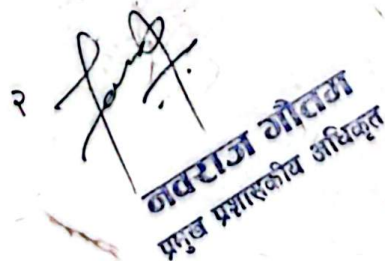 २
नवराज गौतम
प्रमुख प्रशासकीय अधिकृत